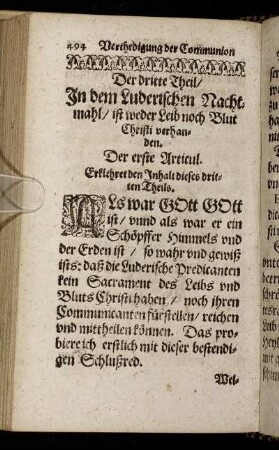 494 Verthedigung der Communion
Der dritte Theil/
In dem Luderischen Nacht-
mahl/ ist weder Leib noch Blut
Christi verhan-
den.
Der erste Articul.
Erklehret den Inhalt dieses drit-
ten Theils.
ALs war GOtt GOtt
ist/ vnnd als war er ein
Schöpffer Himmels vnd
der Erden ist/ so wahr vnd gewiß
ists: daß die Luderische Predicanten
kein Sacrament des Leibs vnd
Bluts Christi haben/ noch jhren
Communicanten fürstellen/ reichen
vnd mittheilen können. Das pro-
biere ich erstlich mit dieser bestendi-
gen Schlußred.
Wel-